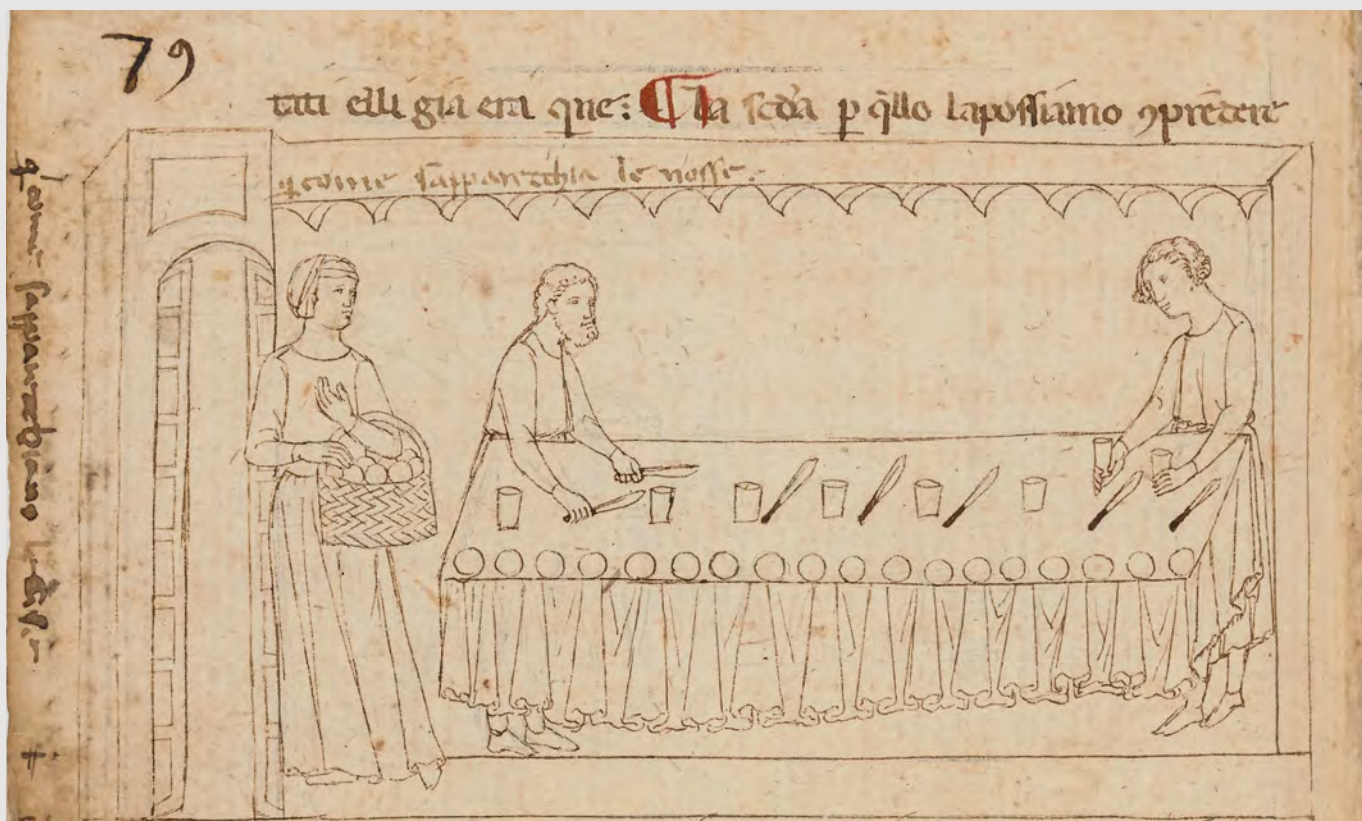 79
tati elli gia era que: ¶ La scđa p q̄llo lapossiamo ꝯprēdere
q̇ come sapparecchia le nosse.
q̇ come sapparecchiano le